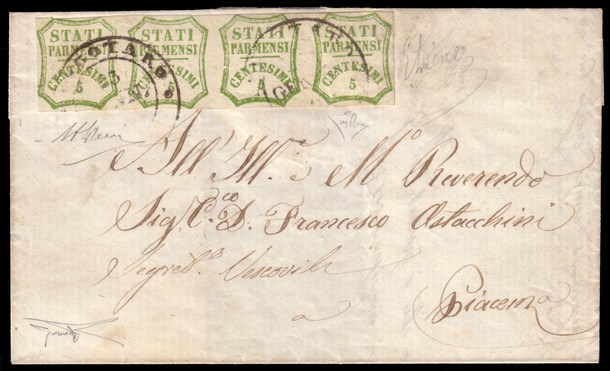 STATI PARMENSI CENTESIMI 5
STATI PARMENSI CENTESIMI 5
STATI PARMENSI CENTESIMI 5
STATI PARMENSI CENTESIMI 5
All' Ill.mo e M.o Reverendo
Sig.r C.co D. Francesco Ostacchini
Segret.o Vescovile
a
Piacenza